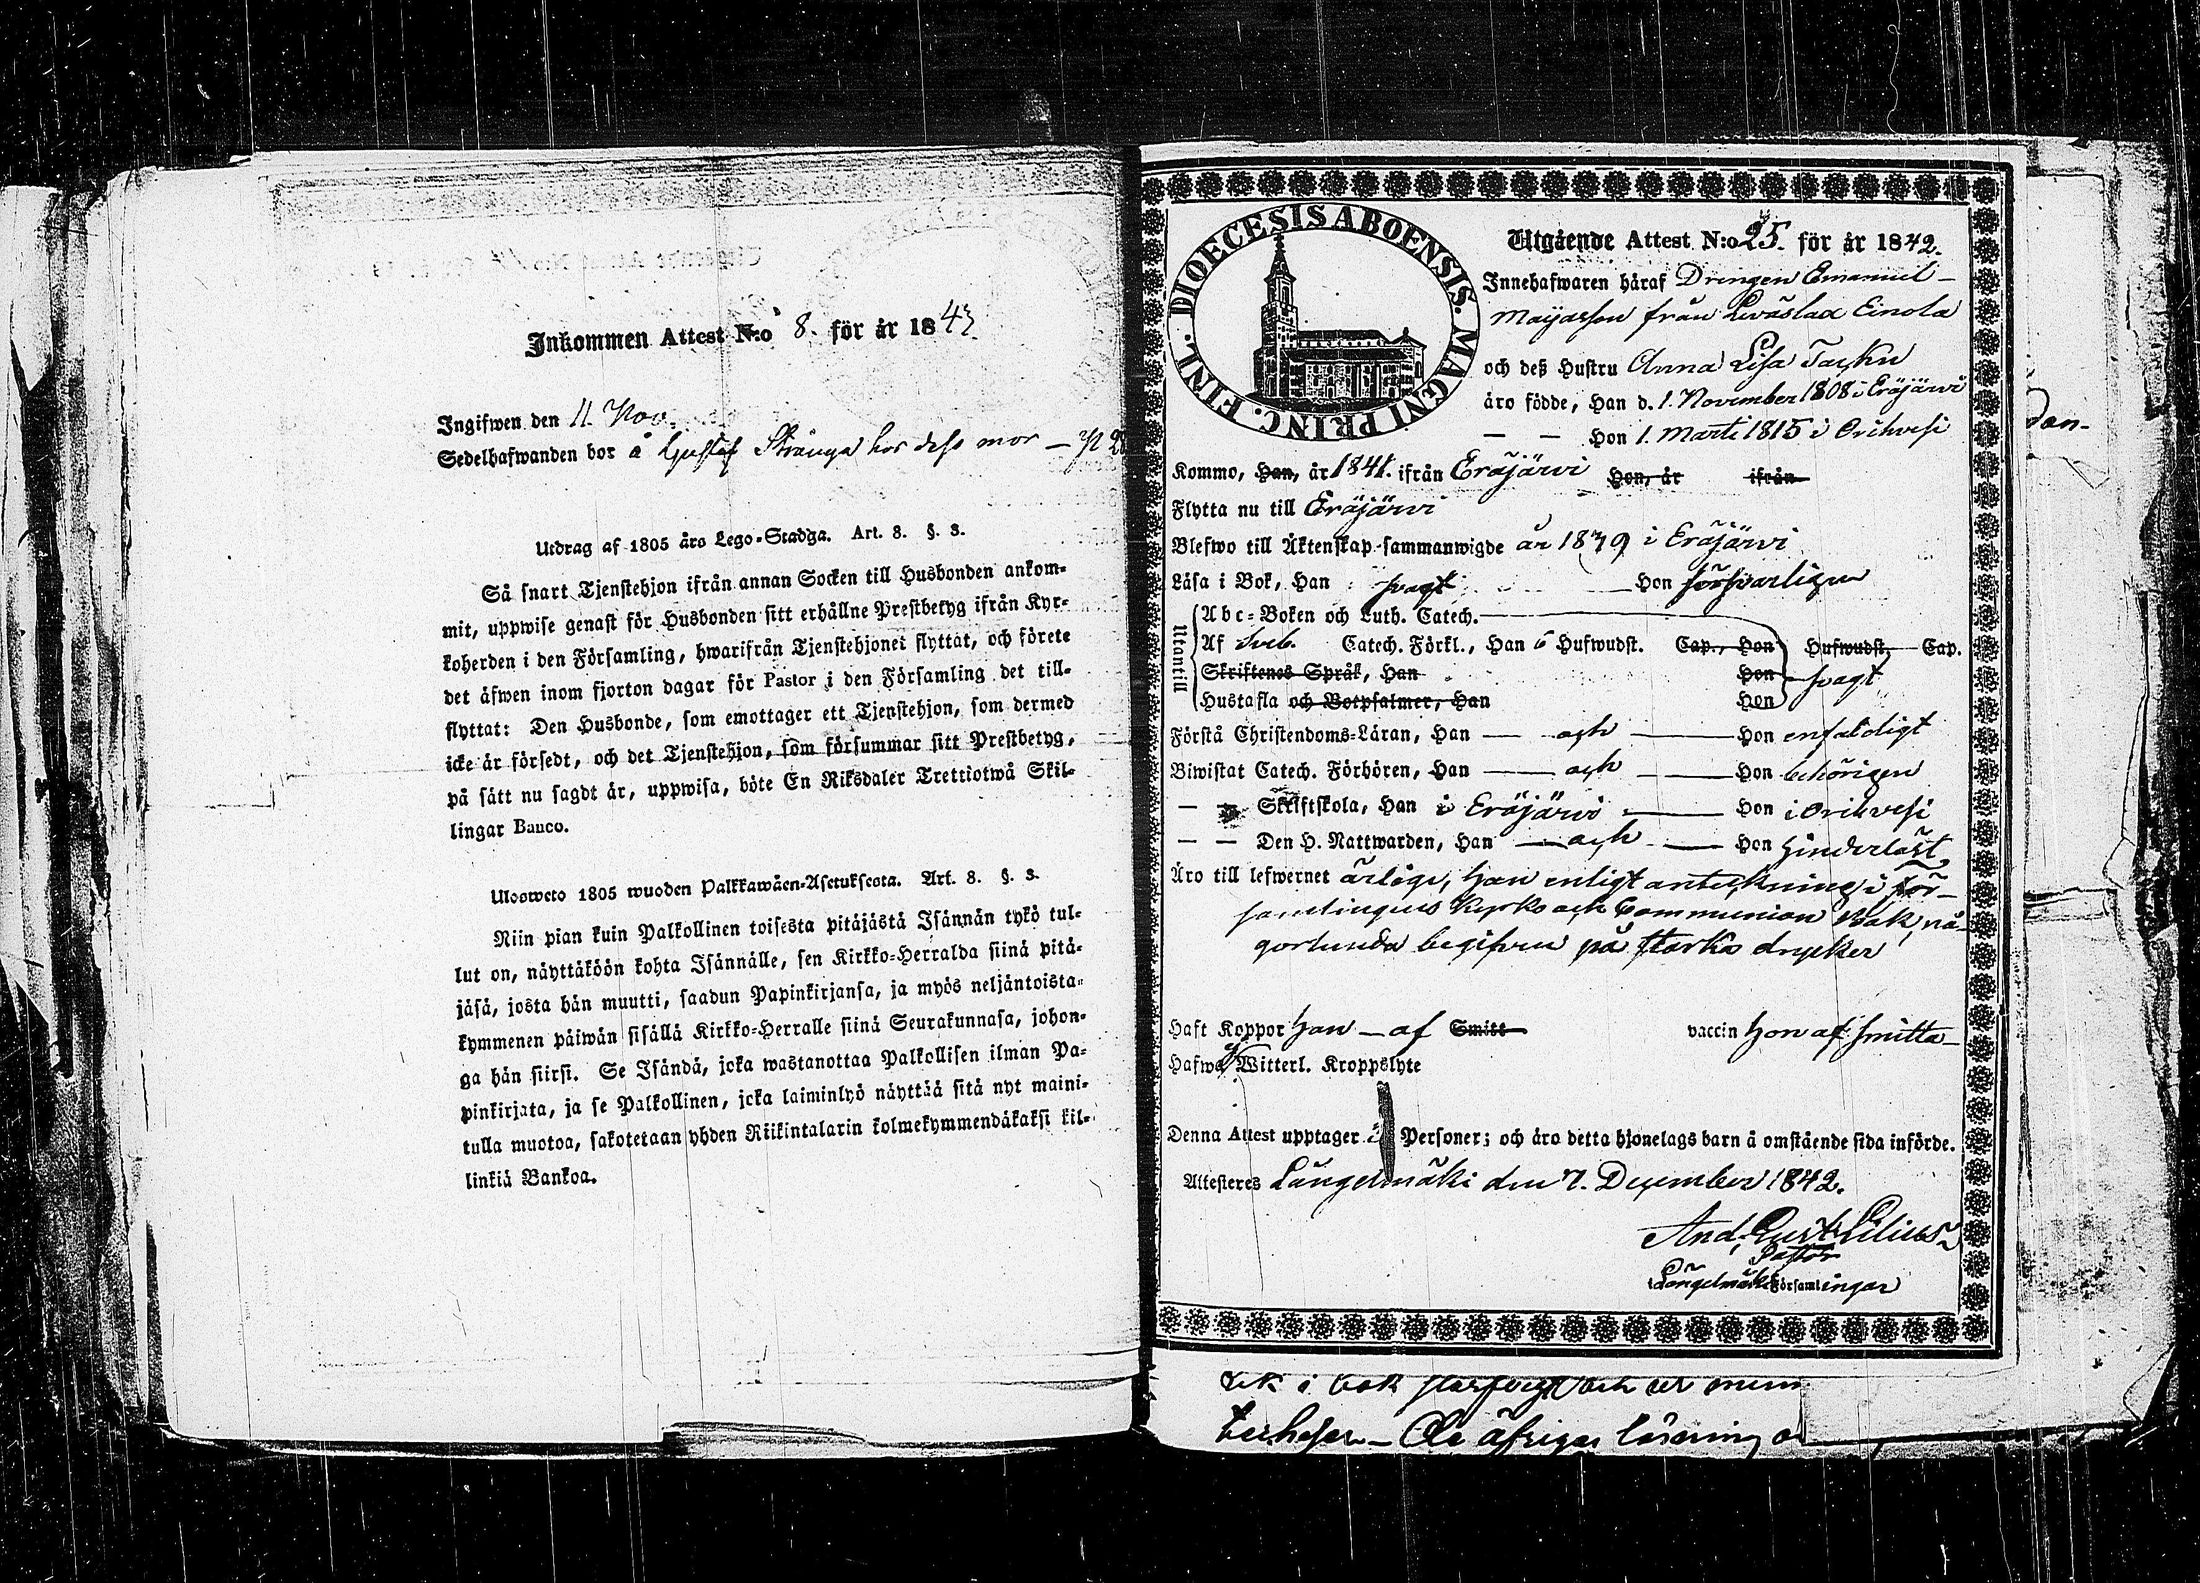 Inkommen Attest N:o 8. för år 1843
Ingifwen den 11. Nov.
Sedelhafwanden bor å Gustaf Stränga hos dess mor —
Utdrag af 1805 års Lego-Stadga. Art. 8. §. 3.
Så snart Tjenstehjon ifrån annan Socken till Husbonden ankom-
mit, uppwise genast för Husbonden sitt erhållne Prestbetyg ifrån Kyr-
koherden i den Församling, hwarifrån Tjenstehjonet flyttat, och förete
det äfwen inom fjorton dagar för Pastor i den Församling det till-
flyttat: Den Husbonde, som emottager ett Tjenstehjon, som dermed
icke är försedt, och det Tjenstehjon, som försummar sitt Prestbetyg,
på sätt nu sagdt är, uppwisa, böte En Riksdaler Trettiotwå Skil-
lingar Banco.
Ulosweto 1805 wuoden Palkkawäen-Asetuksesta. Art. 8. §. 3.
Niin pian kuin Palkollinen toisesta pitäjästä Isännän tykö tul-
lut on, näyttäköön kohta Isännälle, sen Kirkko-Herralda siinä pitä-
jäsä, josta hän muutti, saadun Papinkirjansa, ja myös neljäntoista-
kymmenen päiwän sisällä Kirkko-Herralle siinä Seurakunnasa, johon-
ga hän siirsi. Se Isändä, joka wastanottaa Palkollisen ilman Pa-
pinkirjata, ja se Palkollinen, joka laiminlyö näyttää sitä nyt maini-
tulla muotoa, sakotetaan yhden Riikintalarin kolmekymmendäkaksi kil-
linkiä Bankoa.
DIOECESIS ABOENSIS. MAGNI PRINC. FINL.
Utgående Attest N:o 25. för år 1842.
Innehafwaren häraf Drengen Emanuel
Majasson från Leväslax Einola
och deß Hustru Anna Lisa Tasku
äro födde, Han d. 1. November 1808 i Eräjärvi
— — Hon 1. Marti 1815 i Orihvesi
Kommo, Han, år 1841. ifrån Eräjärvi Hon, år ifrån
Flytta nu till Eräjärvi
Blefwo till Äktenskap sammanwigde år 1839 i Eräjärvi
Läsa i Bok, Han svagt Hon försvarligen
Utantill
Abc-Boken och Luth. Catech.
Af Sveb. Catech. Förkl., Han 6 Hufwudst. Cap., Hon Hufwudst, Cap.
Skriftenes Språk, Han Hon svagt
Hustafla och Botpsalmer, Han Hon
Förstå Christendoms-Läran, Han — och — Hon enfaldigt
Biwistat Catech. Förhören, Han — och — Hon behörigen
— — Skriftskola, Han i Eräjärvi — Hon i Orihvesi
— — Den H. Nattwarden, Han — och — Hon hinderlöst,
Äro till lefwernet ärlige, han enligt anteckning i För-
samlingens Kyrko och Communion Bok, nå-
gorlunda begifven på starka drycker
Haft Koppor Han — af Smitt vaccin Hon af smitta
Hafwa ej Witterl. Kroppslyte
Denna Attest upptager Personer; och äro detta hjonelags barn å omstående sida införde.
Attesteres Längelmäki den 7. December 1842.
And. Gust. Lilius
Pastor
i Längelmäki Församlingar